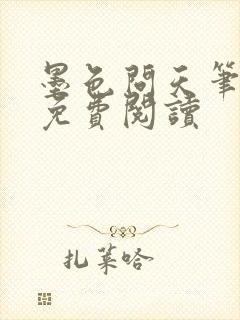 墨色問天筆
免費閱讀
扎菜哈